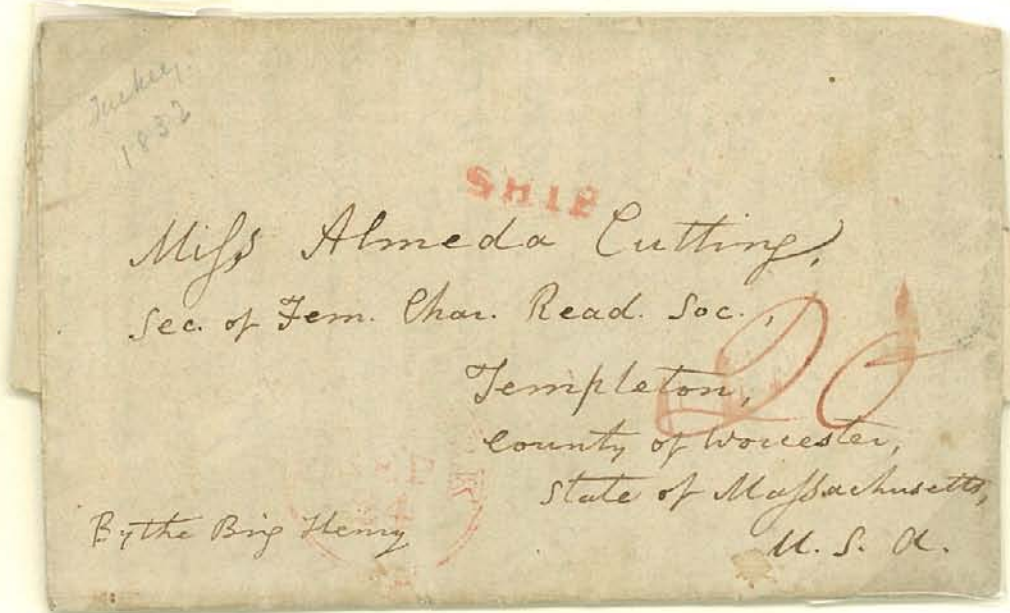 Turkey.
1832
SHIP
Miss Almeda Cutting,
Sec. of Fem. Char. Read. Soc.,
Templeton,
County of Worcester,
State of Massachusetts,
U. S. A.
By the Brig Henry